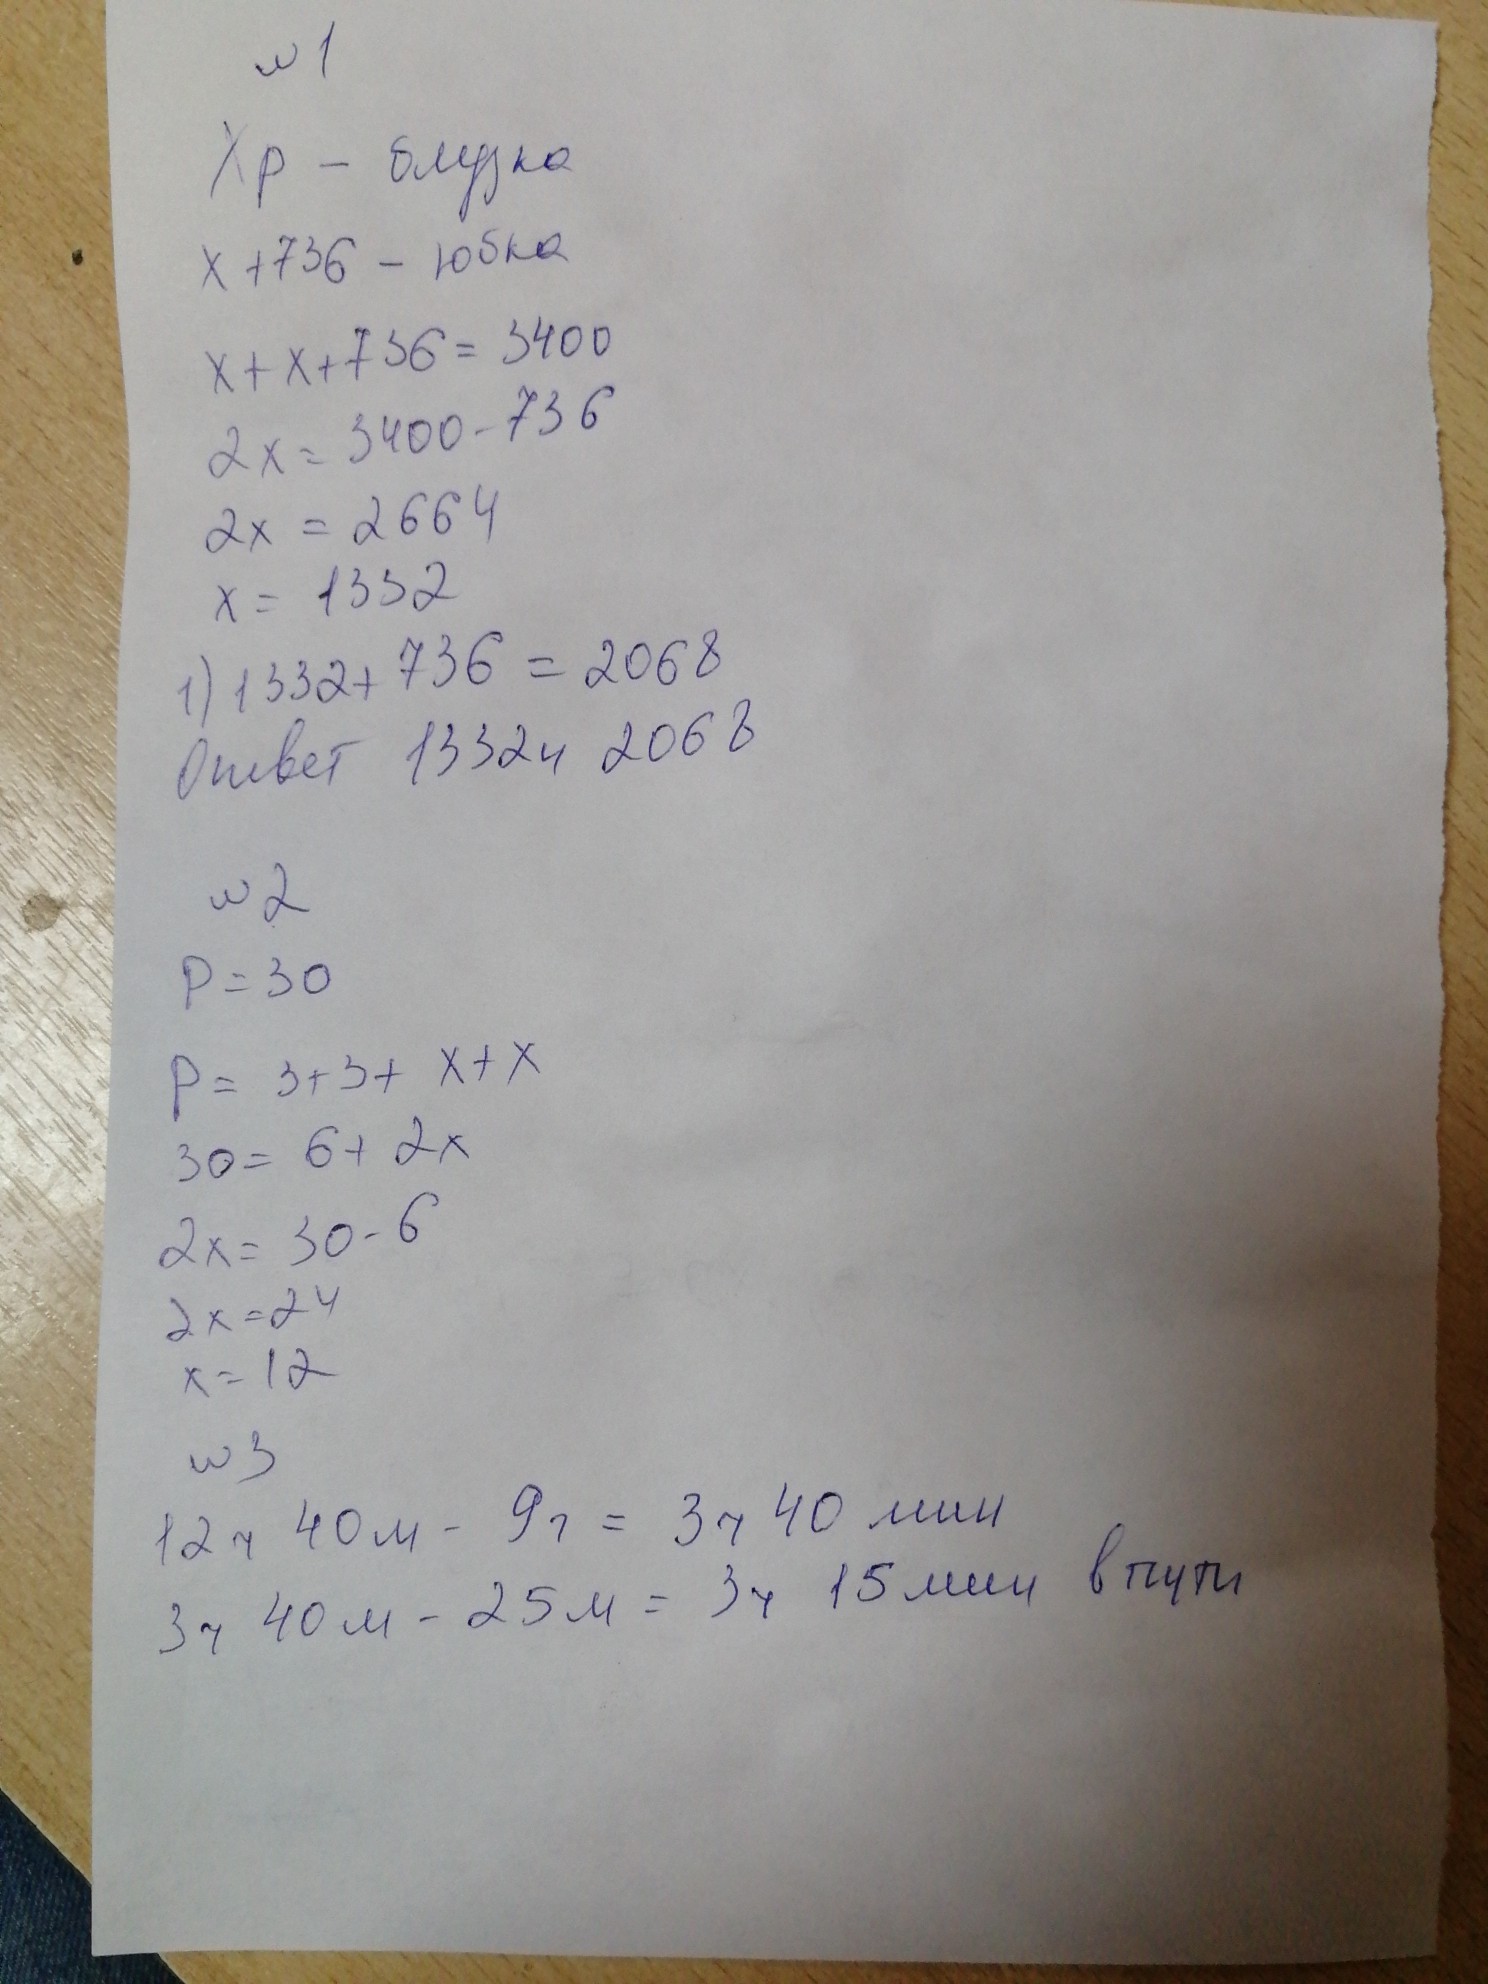 №1
Xр - блузка
x+736 - юбка
x+x+736=3400
2x=3400-736
2x=2664
x=1332
1) 1332+736=2068
Ответ 1332 и 2068
№2
P=30
P=3+3+x+x
30=6+2x
2x=30-6
2x=24
x=12
№3
12ч 40м - 9ч = 3ч 40 мин
3ч 40м - 25м = 3ч 15мин в пути